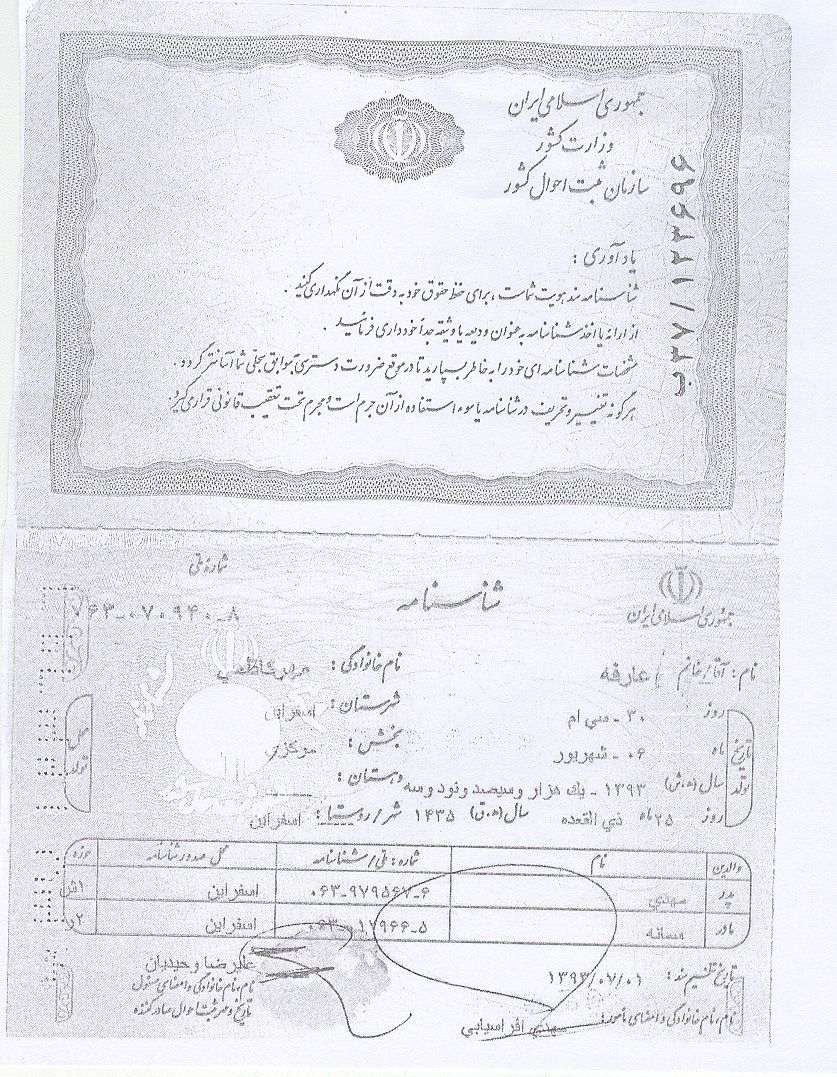 جمهوری اسلامی ایران
وزارت کشور
سازمان ثبت احوال کشور
ب۳۷/۱۲۳۶۹۶
یادآوری :
شناسنامه سند هویت شماست ، برای حفظ حقوق خود به دقت از آن نگهداری کنید .
از ارائه یا اخذ شناسنامه به عنوان ودیعه یا وثیقه جداً خودداری فرمائید .
مشخصات شناسنامه ای خود را به خاطر بسپارید تا در موقع ضرورت دسترسی به سوابق سجلی شما آسانتر گردد .
هرگونه تغییر و تحریف در شناسنامه یا سوء استفاده از آن جرم است و مجرم تحت تعقیب قانونی قرار می گیرد .
شماره ملی
۰۶۳-۰۷۰۹۴۰-۸
شناسنامه
جمهوری اسلامی ایران
نام : آقا/خانم عارفه
نام خانوادگی :
تاریخ تولد
روز ۳۰ - سي ام
شهرستان : اسفراین
ماه ۰۶ - شهریور
بخش : مرکزي
سال (ه.ش) ۱۳۹۳ - یك هزار و سیصد و نود و سه
دهستان :
روز ۲۵ ماه ذي القعده سال (ه.ق) ۱۴۳۵
شهر/روستا : اسفراین
محل تولد
والدین نام شماره : ملی/شناسنامه محل صدور شناسنامه حوزه
پدر مهدي ۰۶۳-۹۷۹۵۶۷-۶ اسفراین ۱ش
مادر ۰۶۳-۰۱۷۹۶۶-۵ اسفراین
تاریخ تنظیم سند : ۱۳۹۳/۰۷/۰۱
نام، نام خانوادگی و امضای مأمور : مهدي افراسیابي
علیرضا وحیدیان
نام، نام خانوادگی و امضای مسئول
تاریخ و مهر ثبت احوال صادر کننده